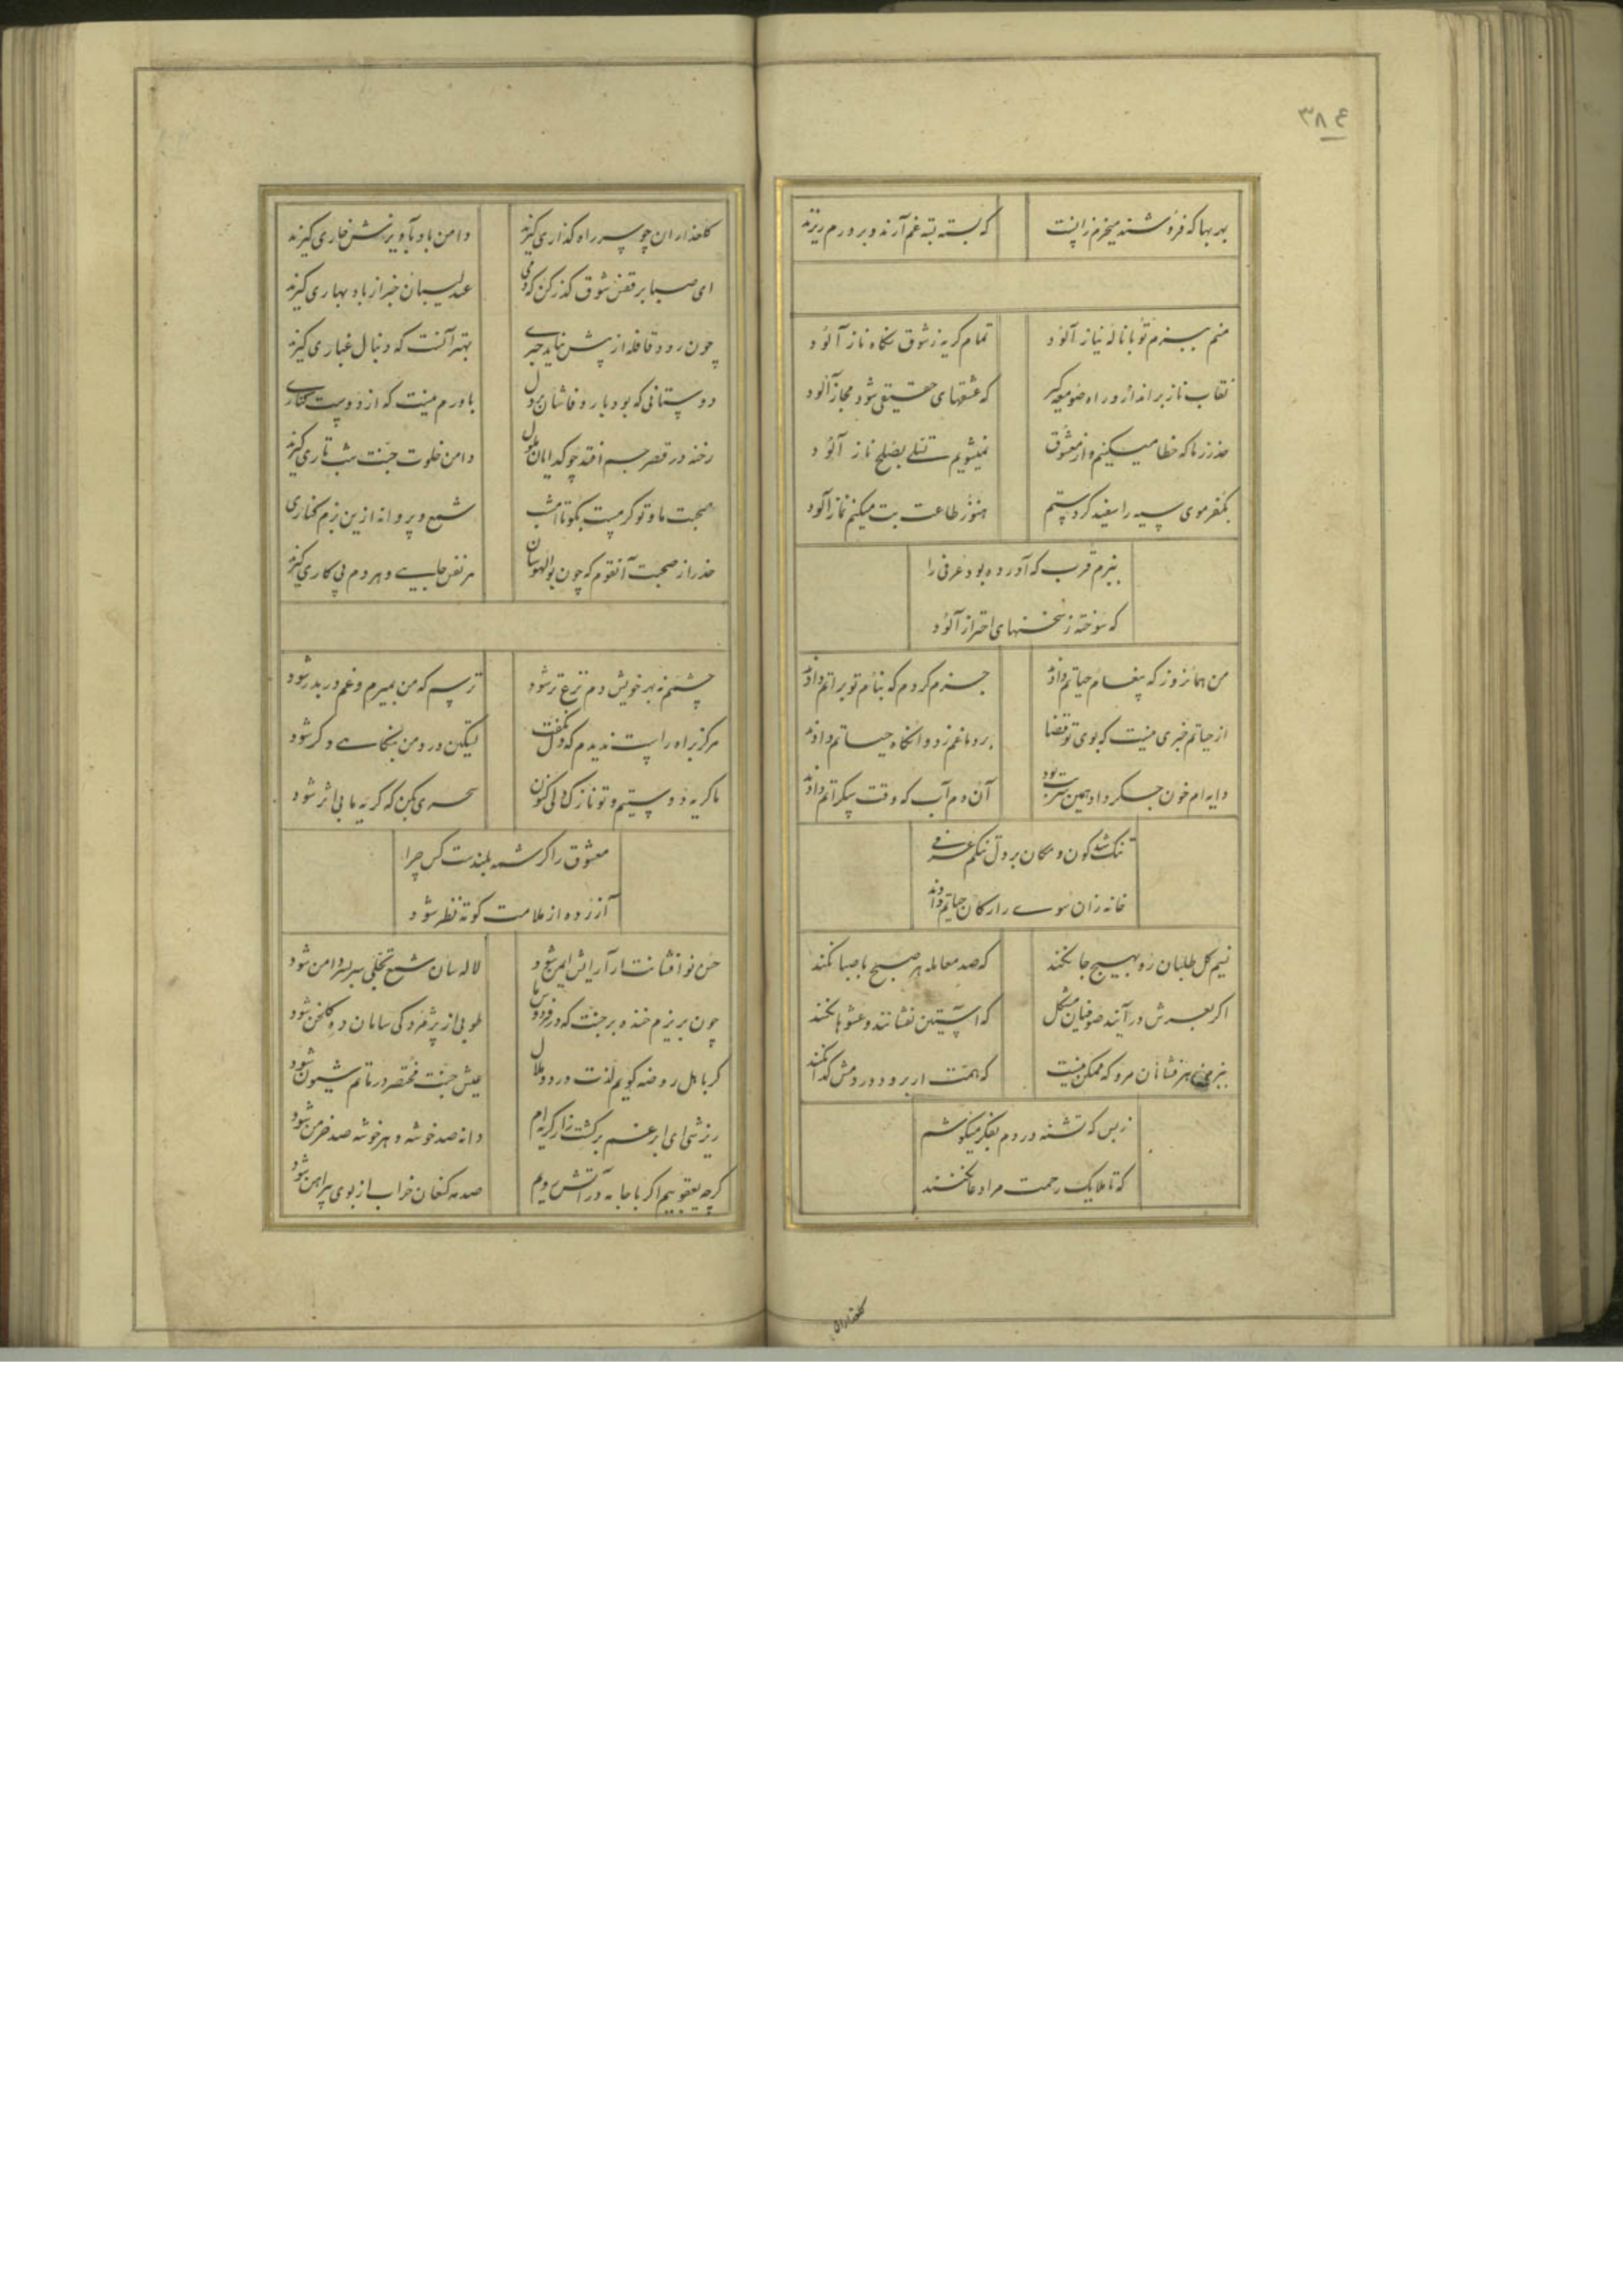 ۳۸۴
بهر بها که فروشند میخرم زانت
که بسته بته غم آرند و بر درم ریزند
منم ببزم تو با ناله نیاز آلود
تمام گریه ز شوق نگاه ناز آلود
نقاب ناز برانداز و راه صومعه گیر
که عشقهای حقیقی شود مجاز آلود
حذر ز ما که خطا میکنیم و از معشوق
نمیشویم تسلی بصلح ناز آلود
بکفر موی سیه را سفید کردستم
هنوز طاعت بت میکنم نماز آلود
ببزم قرب که آورده بود عرفی را
که سوخته ز سخنهای احتراز آلود
من همانروز که پیغام حیاتم دادند
جزم کردم که بنام تو براتم دادند
از حیاتم خبری نیست که بوی تو قضا
بر دماغم زد و انگاه حیاتم دادند
دایه ام خون جگر داد همین شربت بود
آن دم آب که وقت سکراتم دادند
تنگ شد کون و مکان بر دل تنگم عرفی
خانه زان سوی ار کان جهاتم دادند
نسیم گل طلبان رو بهیچ جا نکنند
که صد معامله هر صبح با صبا نکنند
اگر بعرش درآیند صوفیان مشکل
که آستین نفشانند و عشوها نکنند
ببزم نشانان مرو که ممکن نیست
که همت ار برود در دمش گدا نکنند
ز بس که تشنه دردم بفکر میکوشم
که تا ملایک رحمت مرا دعا نکنند
گلعذاران
گلعذاران چو سر راه گذاری گیرند
دامن باد بآویزش خاری گیرند
ای صبا بر قفس شوق گذر کن که دمی
عندلیبان خبر از باد بهاری گیرند
چون رود قافله از پیش نیاید خبری
بهتر آنست که دنبال غباری گیرند
دوستانی که بود بار وفاشان بر دل
باورم نیست که از دوست کناری
رخنه در قصر جم افتد چو گدایان ملول
دامن خلوت جنت شب تاری گیرند
صحبت ما و تو گرمست بگو تا امشب
شمع و پروانه ازین بزم کناری
حذر از صحبت آنقوم که چون بوالهوسان
هر نفس جایی و هر دم پی کاری گیرند
چشمم نه بهر خویش دم نزع تر شود
ترسم که من بمیرم و غم در بدر شود
هرگز براه راست ندیدم که دل نگفت
لیکن درد من بنگاهی دگر شود
ما گریه دوستیم و تو نازک دلی کنون
سحری بکن که گریه ما بی اثر شود
معشوق را کرشمه بلندست کس چرا
آزرده از ملامت کوته نظر شود
حسن نو افشانت ار آرایش ایمن شود
لاله سان شمع تجلی سر بسر دامن شود
چون بریزم خنده بر جنت که در فردوس ما
طوبی از پژمردگی سامان ده گلخن شود
گر باهل روضه گویم لذت درد و ملال
عیش جنت مختصر در ماتم شیون شود
ریزشی ای ابر غم بر کشت زار گریه ام
دانه صد خوشه و هر خوشه صد خرمن شود
گرچه یعقوبیم اگر با جامه در آتش رویم
صد مه کنعان خراب از بوی پیراهن شود